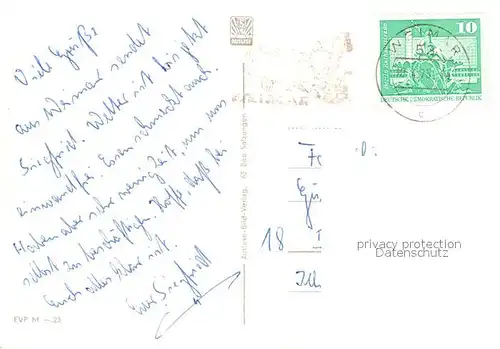 Viele Grüße
aus Weimar sendet
Siegfried. Wetter ist bis jetzt
einwandfrei. Essen schmeckt auch.
Haben aber sehr wenig Zeit, um uns
selbst zu beschäftigen. Hoffe, daß bei
Euch alles klar ist.
Euer Siegfried
EVP M
Auslese-Bild-Verlag, 62 Bad Salzungen
10
DEUTSCHE DEMOKRATISCHE REPUBLIK
18
privacy protection
Datenschutz